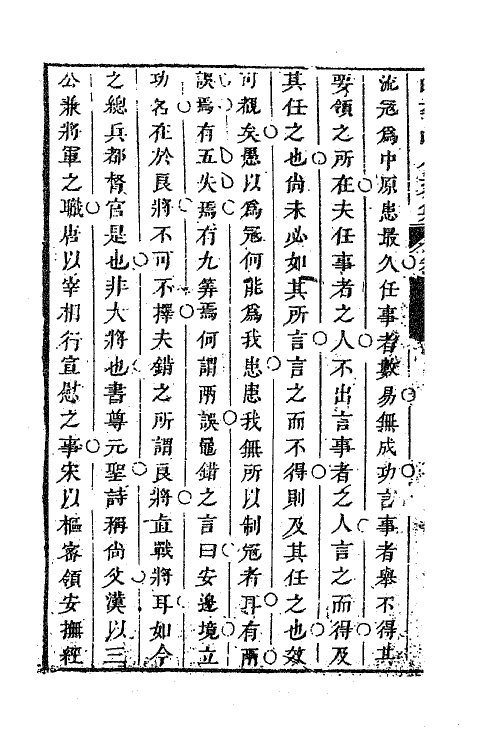 流寇爲中原患最久任事者數易無成功言事者舉不得其
要領之所在夫任事者之人不出言事者之人言之而得及
其任之也尚未必如其所言言之而不得則及其任之也效
可覩矣愚以爲寇何能爲我患患我無所以制寇者耳有兩
誤焉有五失焉有九筭焉何謂兩誤鼂錯之言曰安邊境立
功名在於良將不可不擇夫錯之所謂良將直戰將耳如今
之總兵都督官是也非大將也書尊元聖詩稱尚父漢以三
公兼將軍之職唐以宰相行宣慰之事宋以樞密領安撫經